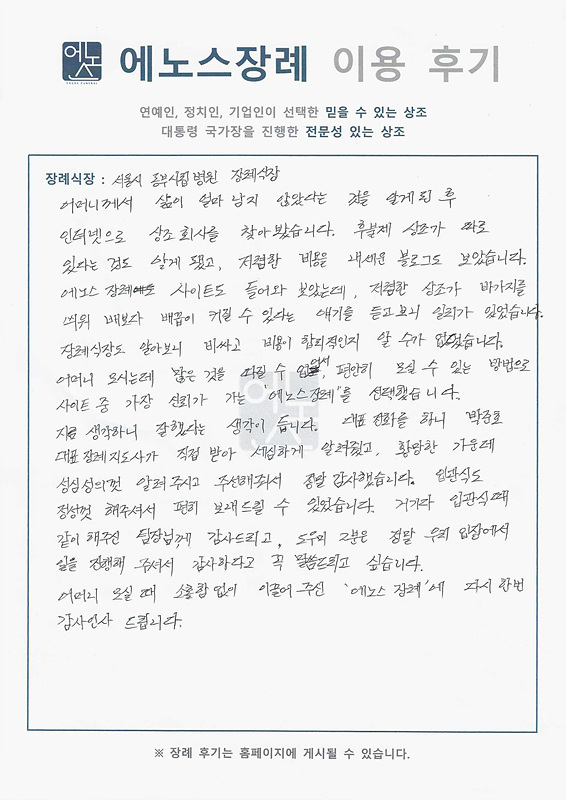 에노스장례 이용 후기
연예인, 정치인, 기업인이 선택한 믿을 수 있는 상조
대통령 국가장을 진행한 전문성 있는 상조
장례식장 : 서울시 동부시립병원 장례식장
어머니께서 삶이 얼마 남지 않았다는 것을 알게 된 후
인터넷으로 상조회사를 찾아봤습니다. 후불제 상조가 따로
있다는 것도 알게 됐고, 저렴한 비용을 내세운 블로그도 보았습니다.
에노스 장례 사이트도 들어와 보았는데, 저렴한 상조가 바가지를
씌워 배보다 배꼽이 커질 수 있다는 얘기를 듣고보니 일리가 있었습니다.
장례식장도 알아보니 비싸고 비용이 합리적인지 알 수가 없었습니다.
어머니 모시는데 많은 것을 따질 수 없어서, 편안히 모실 수 있는 방법으로
사이트 중 가장 신뢰가 가는 '에노스장례'를 선택했습니다.
지금 생각하니 잘했다는 생각이 듭니다. 대표전화를 하니 박준호
대표 장례지도사가 직접 받아 세심하게 알려줬고, 황망한 가운데
성심성의껏 알려주시고 주선해줘서 정말 감사했습니다. 입관식도
정성껏 해주셔서 편히 보내드릴 수 있었습니다. 거기다 입관식때
같이 해주신 팀장님께 감사드리고, 도우미 2분은 정말 우리 입장에서
일을 진행해 주셔서 감사하다고 꼭 말씀드리고 싶습니다.
어머니 모실 때 소홀함 없이 이끌어 주신 '에노스 장례'에 다시 한번
감사인사 드립니다.
※ 장례 후기는 홈페이지에 게시될 수 있습니다.